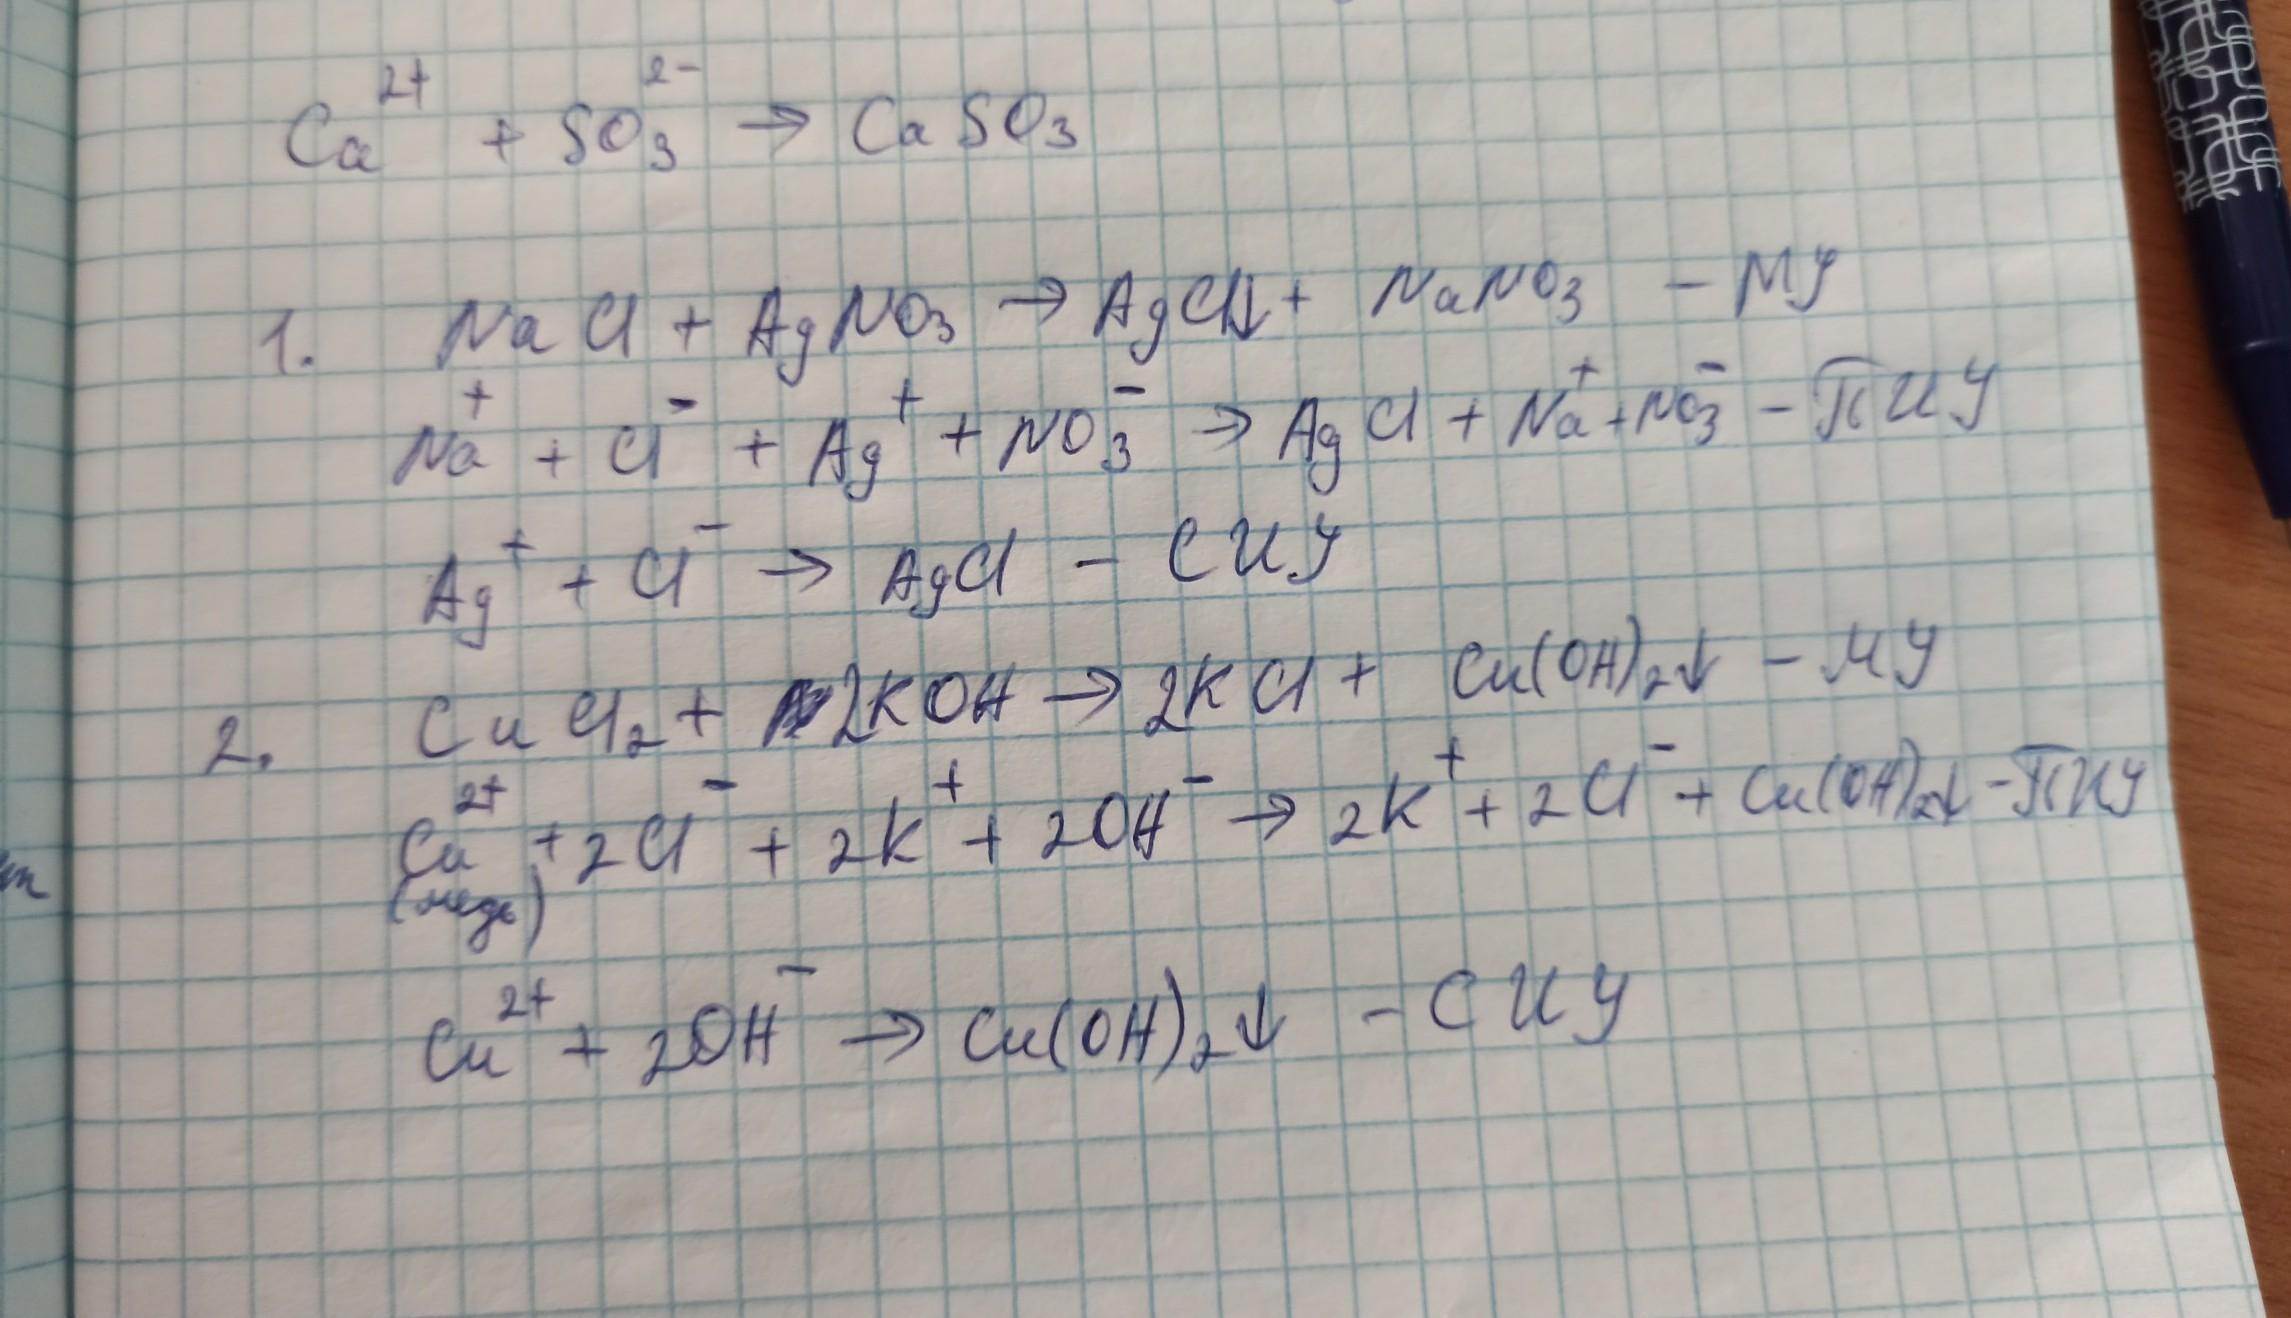 Ca²⁺ + SO₃²⁻ → CaSO₃
1. NaCl + AgNO₃ → AgCl↓ + NaNO₃ - МУ
Na⁺ + Cl⁻ + Ag⁺ + NO₃⁻ → AgCl + Na⁺ + NO₃⁻ - ПИУ
Ag⁺ + Cl⁻ → AgCl - СИУ
2. CuCl₂ + 2KOH → 2KCl + Cu(OH)₂↓ - МУ
Cu²⁺ + 2Cl⁻ + 2K⁺ + 2OH⁻ → 2K⁺ + 2Cl⁻ + Cu(OH)₂↓ - ПИУ
(медь)
Cu²⁺ + 2OH⁻ → Cu(OH)₂↓ - СИУ